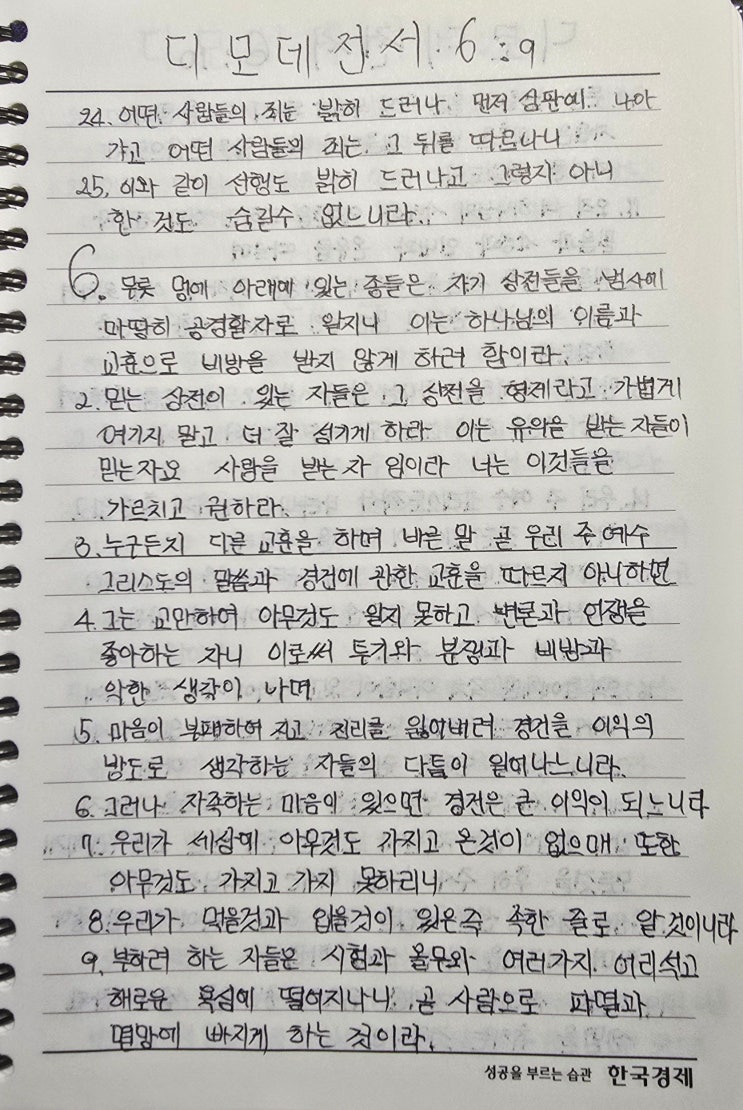 디모데전서 6:9
24. 어떤 사람들의 죄는 밝히 드러나 먼저 심판에 나아
가고 어떤 사람들의 죄는 그 뒤를 따르나니
25. 이와 같이 선행도 밝히 드러나고 그렇지 아니
한 것도 숨길수 없느니라
6. 무릇 멍에 아래에 있는 종들은 자기 상전들을 범사에
마땅히 공경할자로 알지니 이는 하나님의 이름과
교훈으로 비방을 받지 않게 하려 함이라.
2. 믿는 상전이 있는 자들은 그 상전을 형제라고 가볍게
여기지 말고 더 잘 섬기게 하라 이는 유익을 받는 자들이
믿는자요 사랑을 받는 자 임이라 너는 이것들을
가르치고 권하라.
3. 누구든지 다른 교훈을 하며 바른 말 곧 우리 주 예수
그리스도의 말씀과 경건에 관한 교훈을 따르지 아니하면
4. 그는 교만하여 아무것도 알지 못하고 변론과 언쟁을
좋아하는 자니 이로써 투기와 분쟁과 비방과
악한 생각이 나며
5. 마음이 부패하여 지고 진리를 잃어버려 경건을 이익의
방도로 생각하는 자들의 다툼이 일어나느니라.
6. 그러나 자족하는 마음이 있으면 경건은 큰 이익이 되느니라
7. 우리가 세상에 아무것도 가지고 온것이 없으매 또한
아무것도 가지고 가지 못하리니
8. 우리가 먹을것과 입을것이 있은즉 족한 줄로 알 것이니라
9. 부하려 하는 자들은 시험과 올무와 여러가지 어리석고
해로운 욕심에 떨어지나니 곧 사람으로 파멸과
멸망에 빠지게 하는 것이라.
성공을 부르는 습관 한국경제